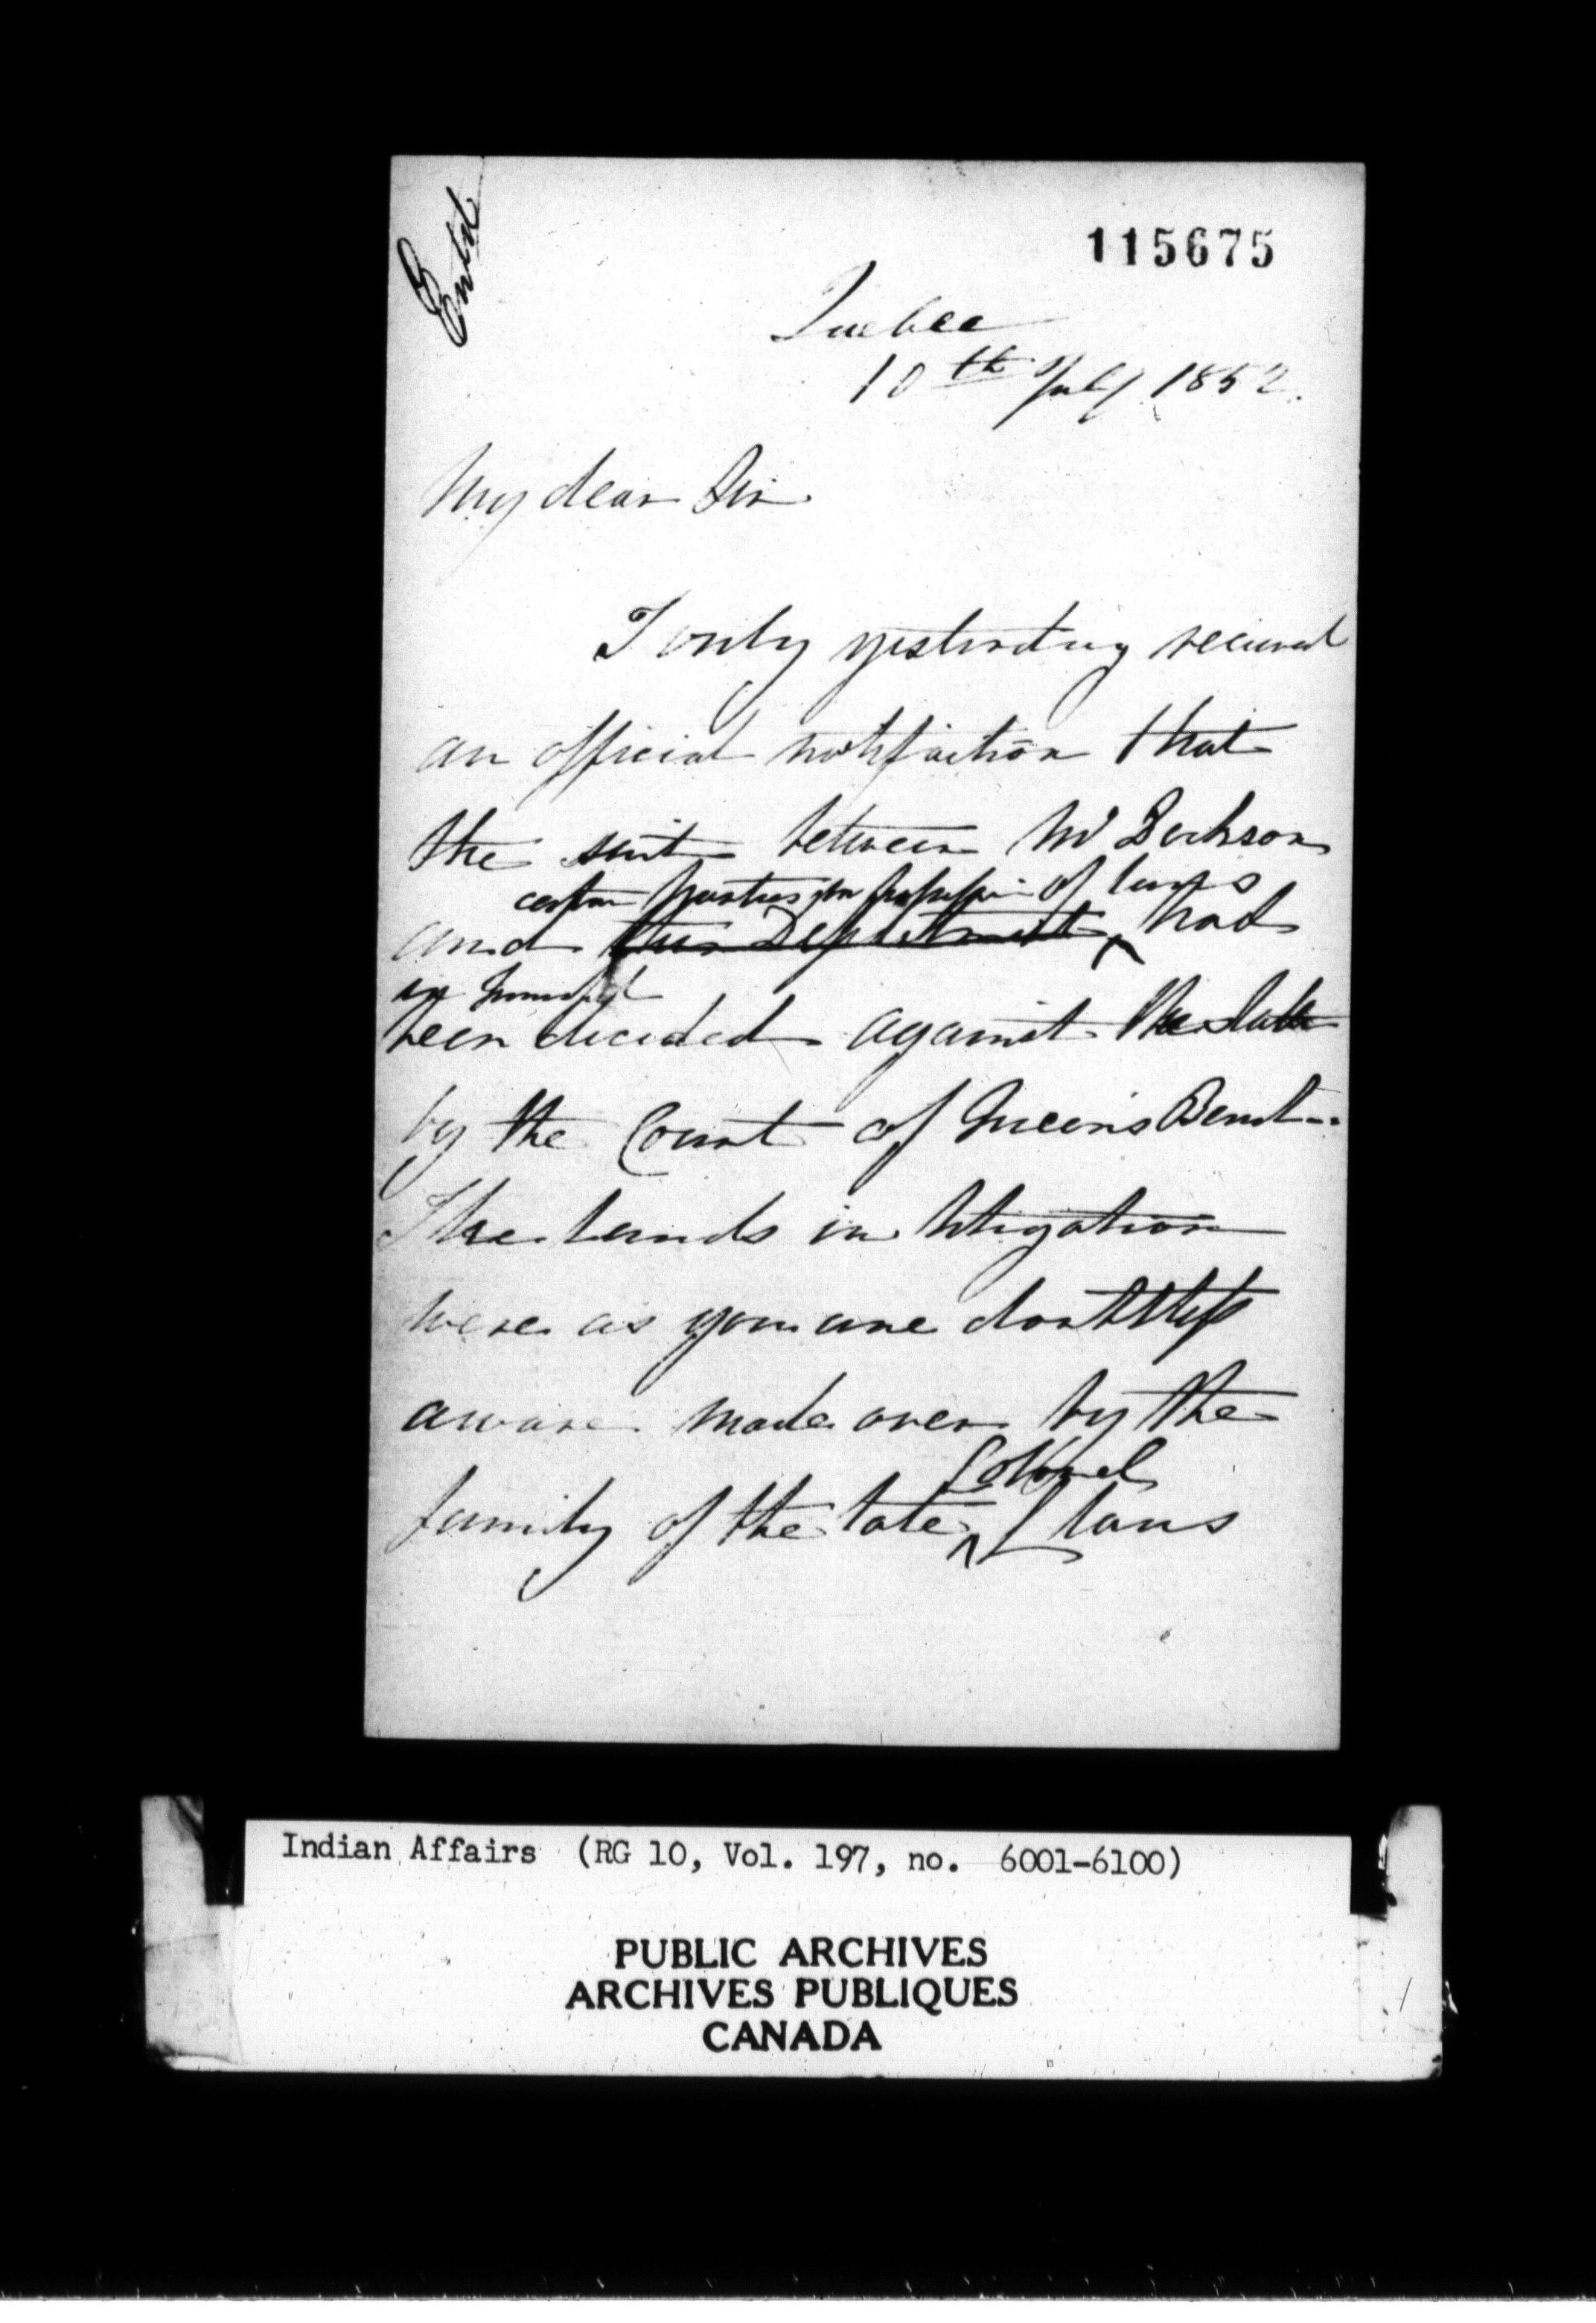 Entd
115675
Quebec
10th July 1852.
My dear Sir
I only yesterday received
an official notification that
the suit between Mr Dickson
certain parties in possession of lands
and this Department had
been decided against the latter
by the Court of Queen's Bench.
The lands in litigation
were as you are doubtless
aware made over by the
Colonel
family of the late Claus
Indian Affairs (RG 10, Vol. 197, no. 6001-6100)
PUBLIC ARCHIVES
ARCHIVES PUBLIQUES
CANADA